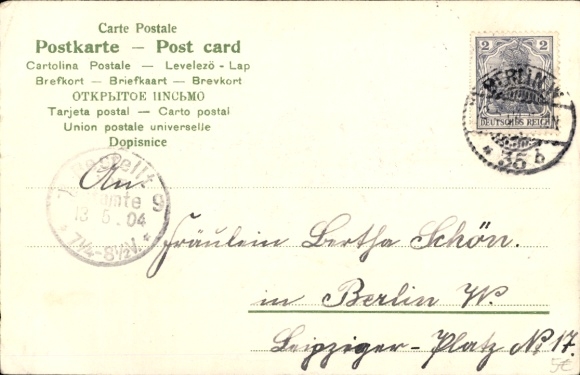 Carte Postale
Postkarte — Post card
Cartolina Postale — Levelező - Lap
Brefkort — Briefkaart — Brevkort
ОТКРЫТОЕ ПИСЬМО
Tarjeta postal — Carto postal
Union postale universelle
Dopisnice
2
BERLIN W.
DEUTSCHES REICH
* 35 b
Bestellt
9
13.5.04
* 7¼-8½V. *
An
Fräulein Bertha Schön.
in Berlin W.
Leipziger-Platz No 17.
5€